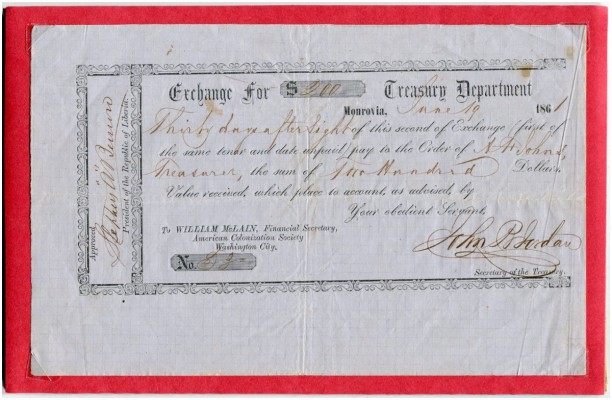 Exchange For $ 200 Treasury Department
Monrovia, June 19 1861
Thirty days after Sight of this second of Exchange (first of
the same tenor and date unpaid) pay to the Order of
Treasurer, the sum of Two Hundred Dollars,
Value received, which place to account, as advised, by
Your obedient Servant,
To WILLIAM McLAIN, Financial Secretary,
American Colonization Society
Washington City.
No.
John
Secretary of the Treasury.
Approved,
Stephen A Benson
President of the Republic of Liberia.